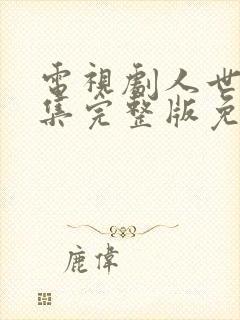 電視劇人世
集完整版免
鹿偉